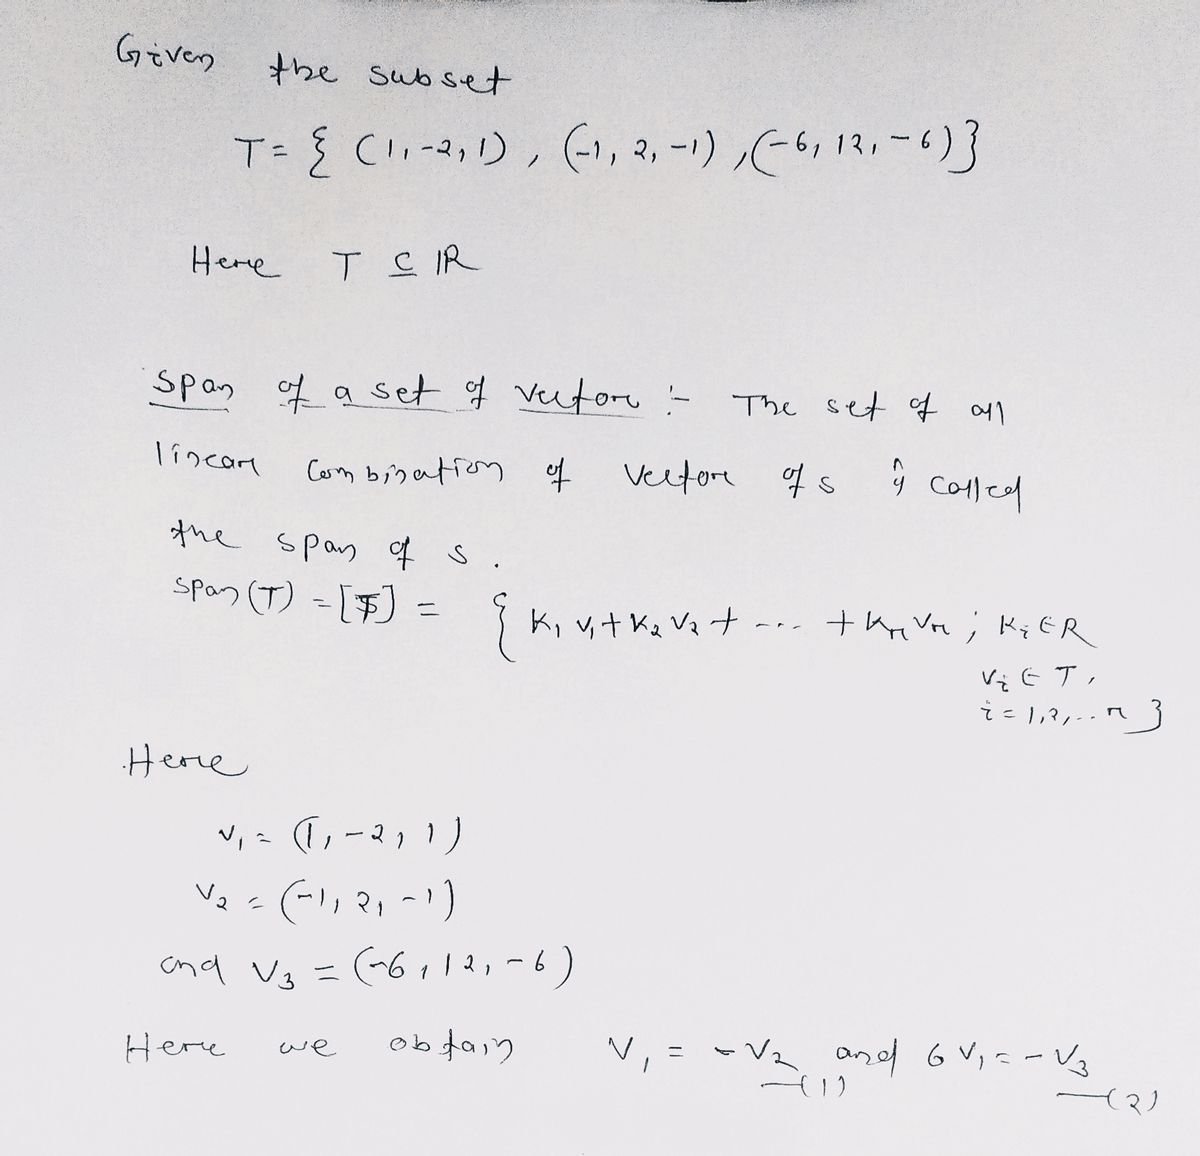 Given the subset
T = { (1, -2, 1), (-1, 2, -1), (-6, 12, -6)}
Here T ⊆ IR
Span of a set of vector :- The set of all
linear combination of vector of s is called
the span of s.
span (T) = [T] = { K₁ v₁ + K₂ V₂ + --- + Kᵣ Vᵣ ; Kᵢ ∈ R
Vᵢ ∈ T,
i = 1, 2, .. r }
Here
v₁ = (1, -2, 1)
V₂ = (-1, 2, -1)
and V₃ = (-6, 12, -6)
Here we obtain V₁ = - V₂ —(1) and 6 V₁ = - V₃ —(2)